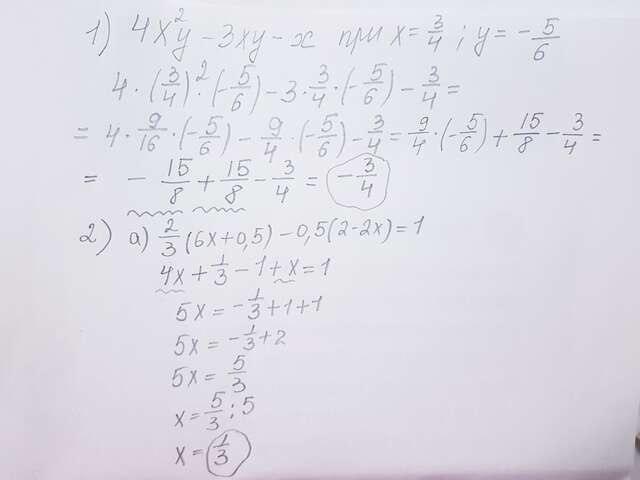 1) 4x²y - 3xy - x при x = 3/4 ; y = - 5/6
4 · (3/4)² · (-5/6) - 3 · 3/4 · (-5/6) - 3/4 =
= 4 · 9/16 · (-5/6) - 9/4 · (-5/6) - 3/4 = 9/4 · (-5/6) + 15/8 - 3/4 =
= - 15/8 + 15/8 - 3/4 = - 3/4
2) а) 2/3 (6x+0,5) - 0,5(2-2x) = 1
4x + 1/3 - 1 + x = 1
5x = - 1/3 + 1 + 1
5x = - 1/3 + 2
5x = 5/3
x = 5/3 : 5
x = 1/3